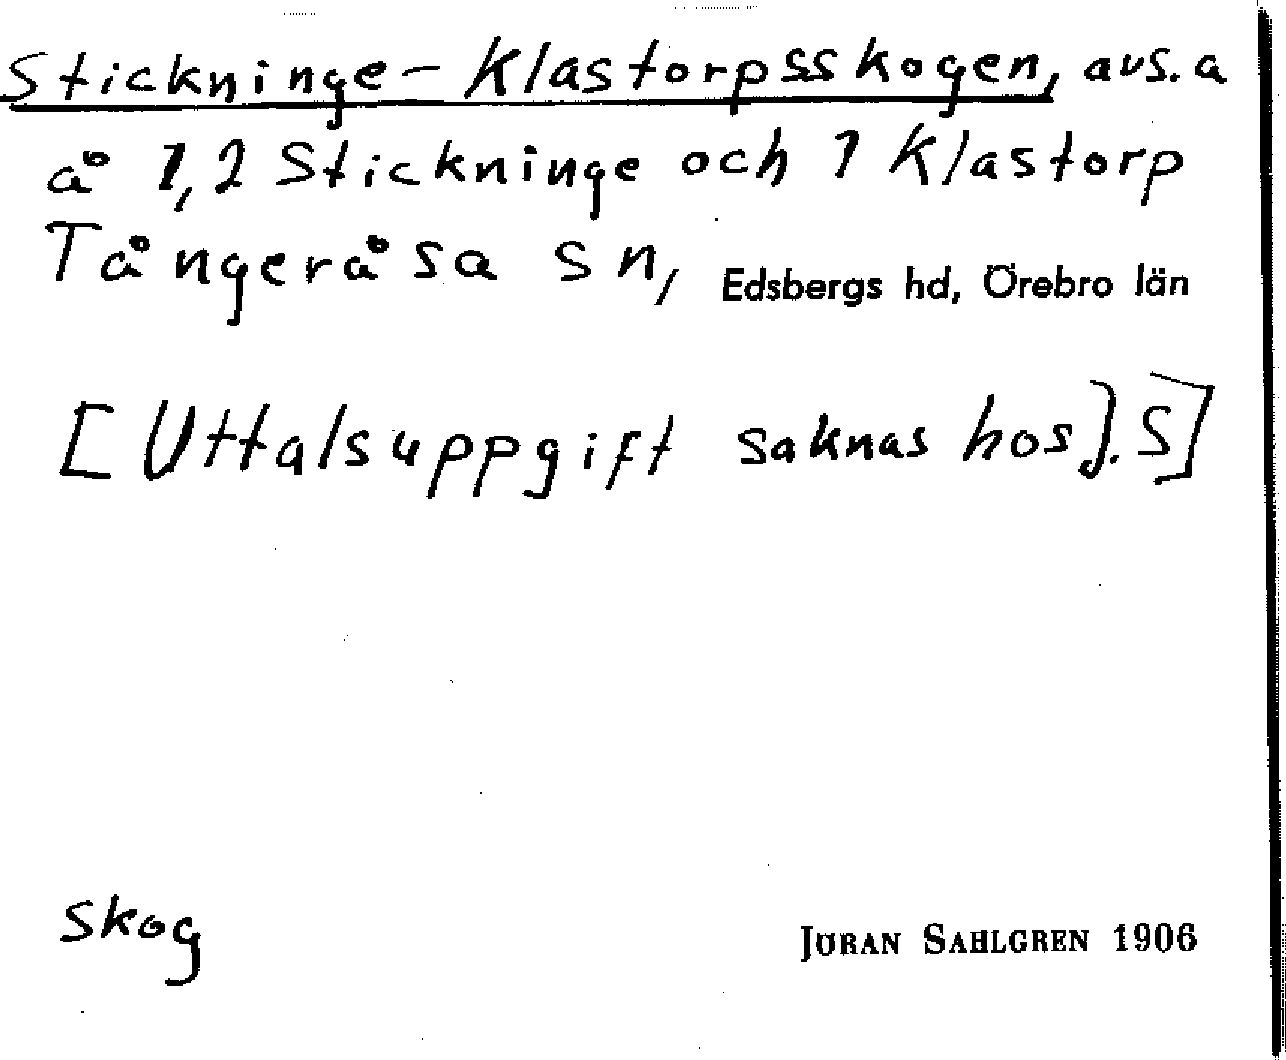 Stickninge-Klastorpsskogen, avs.a
å 1,2 Stickninge och 1 Klastorp
Tångeråsa sn, Edsbergs hd, Örebro län
[Uttalsuppgift saknas hos J.S]
skog
JÖRAN SAHLGREN 1906